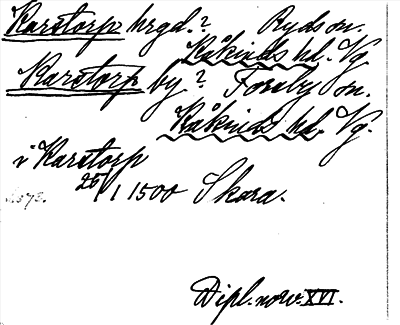 Karstorp hrgd.? Ryds sn.
Kåkinds hd. Vg.
Karstorp by? Forsby sn.
Kåkinds hd. Vg.
i Karstorp
25/1 1500 Skara.
Dipl. norv. XVI.